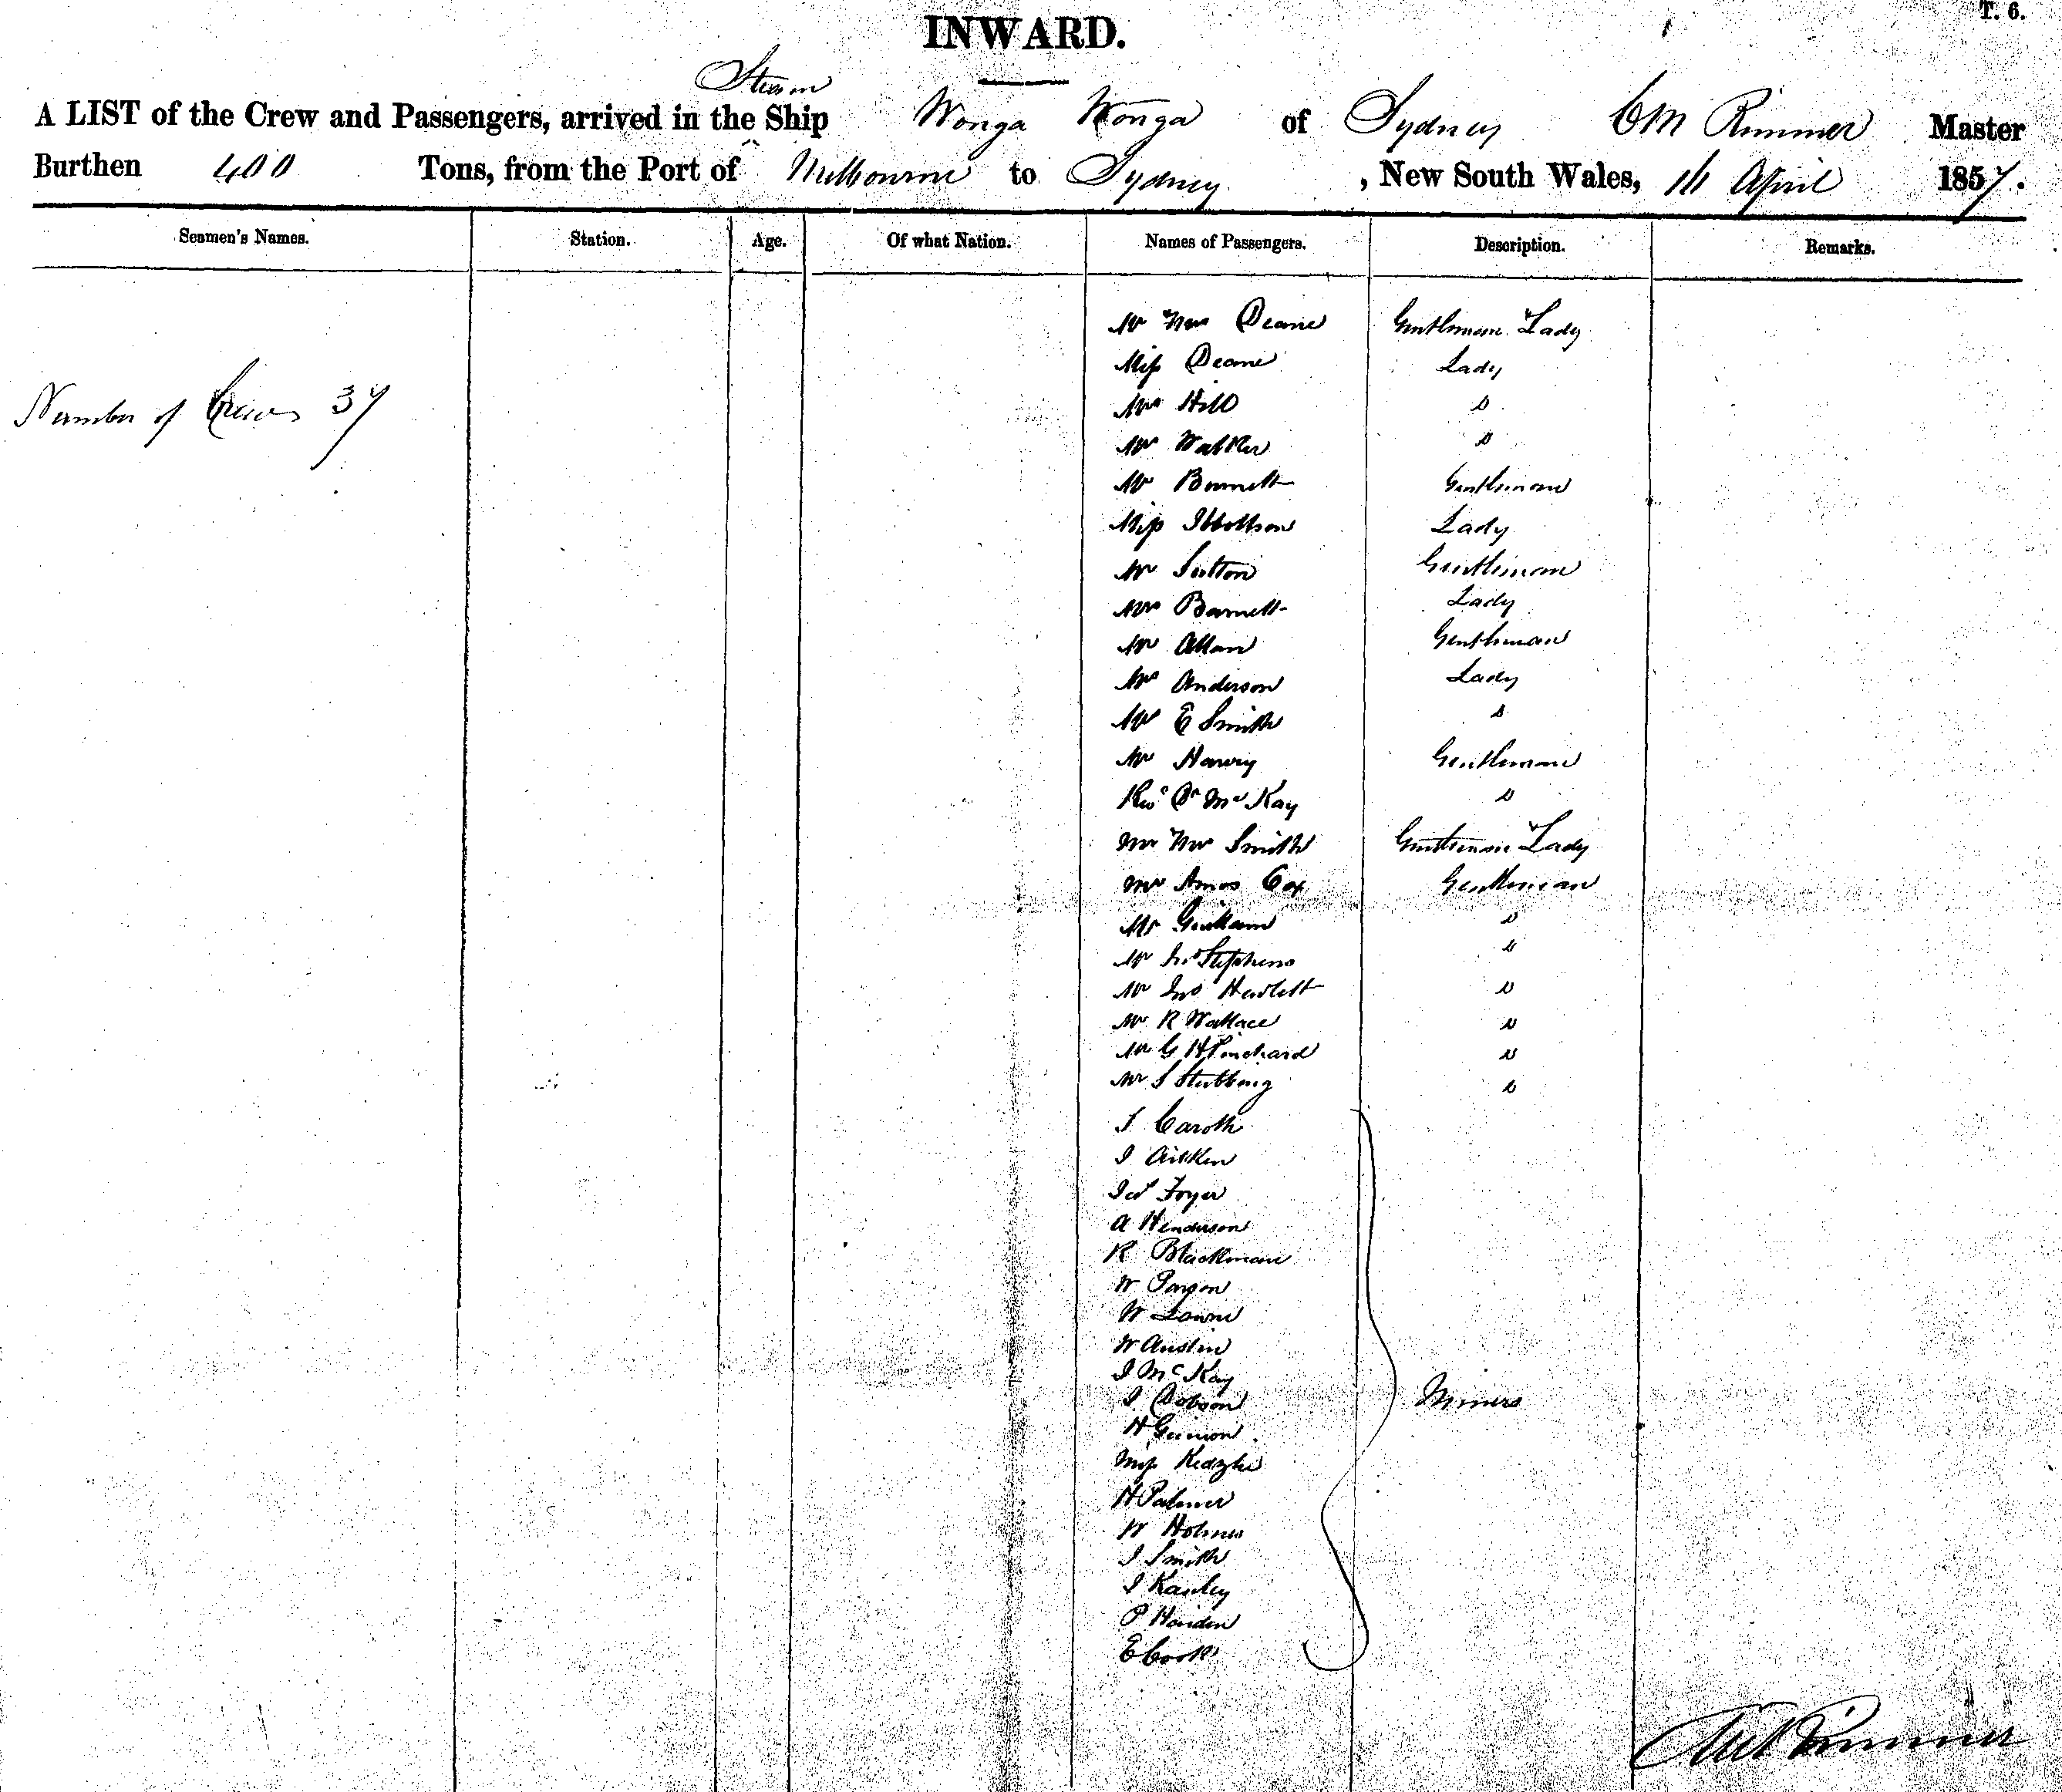 T. 6.
INWARD.
Steam
A LIST of the Crew and Passengers, arrived in the Ship Wonga Wonga of Sydney C M Rimmer Master
Burthen 400 Tons, from the Port of Melbourne to Sydney, New South Wales, April 1857.
Seamen's Names. Station. Age. Of what Nation. Names of Passengers. Description. Remarks.
Mr Mrs Deane Gentleman Lady
Miss Deane Lady
Number of Crew 37
Mrs Hill D
Mrs Walker D
Mr Gentleman
Miss Ibbotson Lady
Mr Sutton Gentleman
Mrs Barnett Lady
Mr Allan Gentleman
Mrs Anderson Lady
Mrs E Smith D
Mr Harvey Gentleman
Revd Dr McKay D
Mr Mrs Smith Gentleman Lady
Mr Amos Cox Gentleman
Mr D
Mr Jno Stephens D
Mr Jno Hewlett D
Mr R Wallace D
Mr G H Pinchard D
Mr S Stubbing D
J Caroth
J Aitken
Foyer
A Henderson
R Blackman
W
W
W Austin
J McKay
J Dobson Miners
H
Miss
H Palmer
W Holmes
J Smith
J
P
E Cook
Rimmer